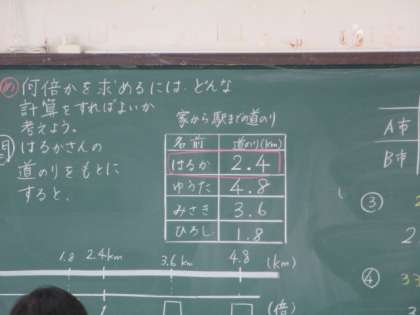 め 何倍かを求めるには、どんな
計算をすればよいか
考えよう。
問 はるかさんの
道のりをもとに
すると、
家から駅までの道のり
名前 道のり(km)
はるか 2.4
ゆうた 4.8
みさき 3.6
ひろし 1.8
1.8 2.4km 3.6km 4.8 (km)
1 (倍)
A市
B市
③
2
④